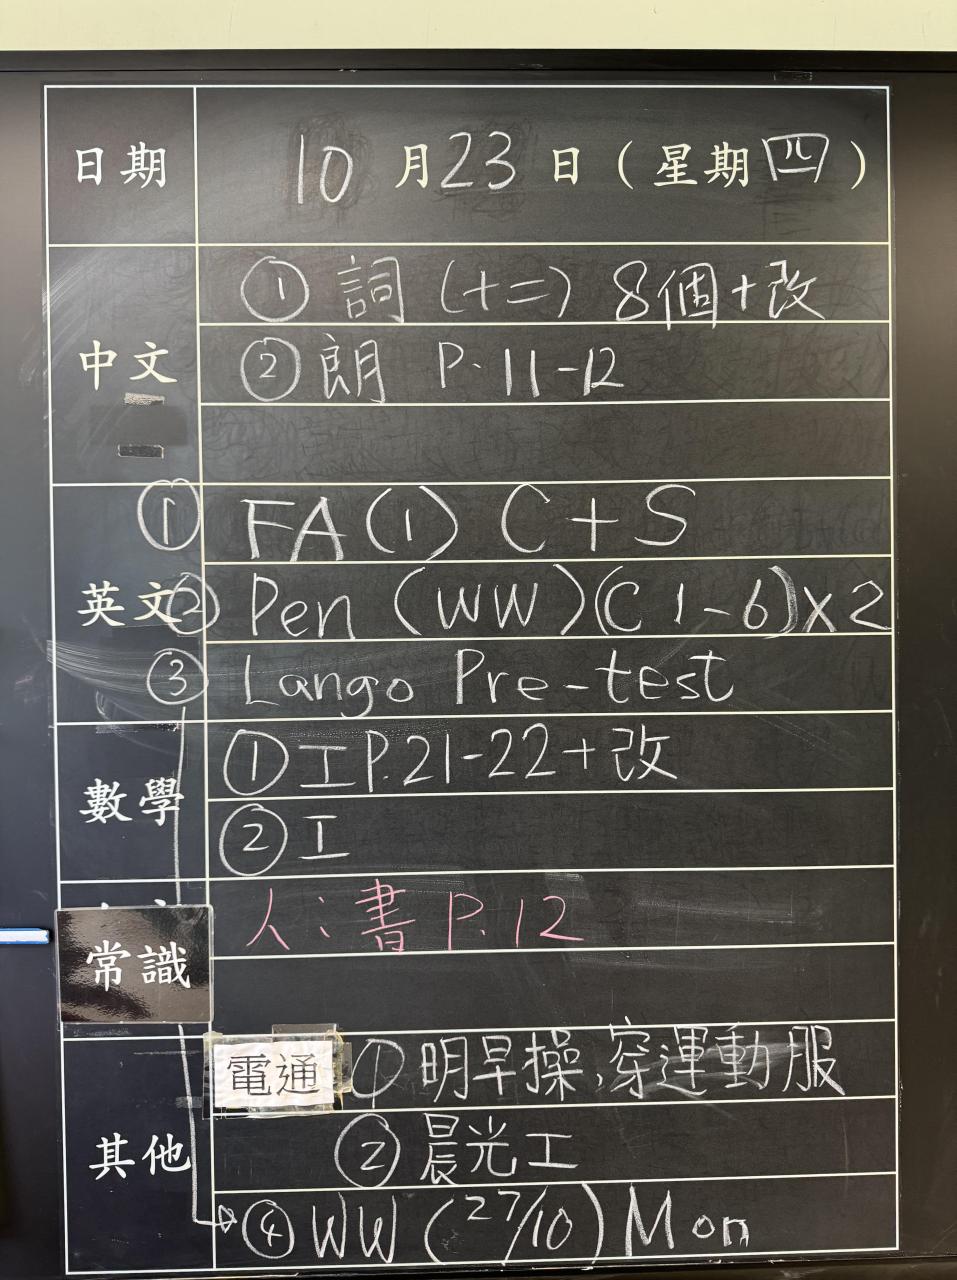 日期 10月23日(星期四)
中文
① 詞(十二) 8個+改
② 朗 P.11-12
英文
① FA(1) C+S
② Pen (WW)(C 1-6)x2
③ Lango Pre-test
數學
① 工P.21-22+改
② 工
常識
人:書 P.12
其他
電通 ① 明早操,穿運動服
② 晨光工
④ WW (27/10) Mon